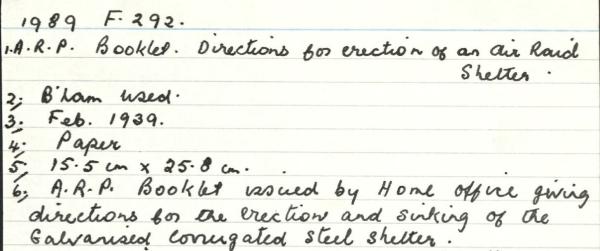 1989 F. 292.
1. A.R.P. Booklet. Directions for erection of an Air Raid
Shelter.
2; B'ham used.
3; Feb. 1939.
4; Paper
5; 15.5 cm x 25.8 cm.
6; A.R.P. Booklet issued by Home office giving
directions for the erection and sinking of the
Galvanised Corrugated Steel Shelter.